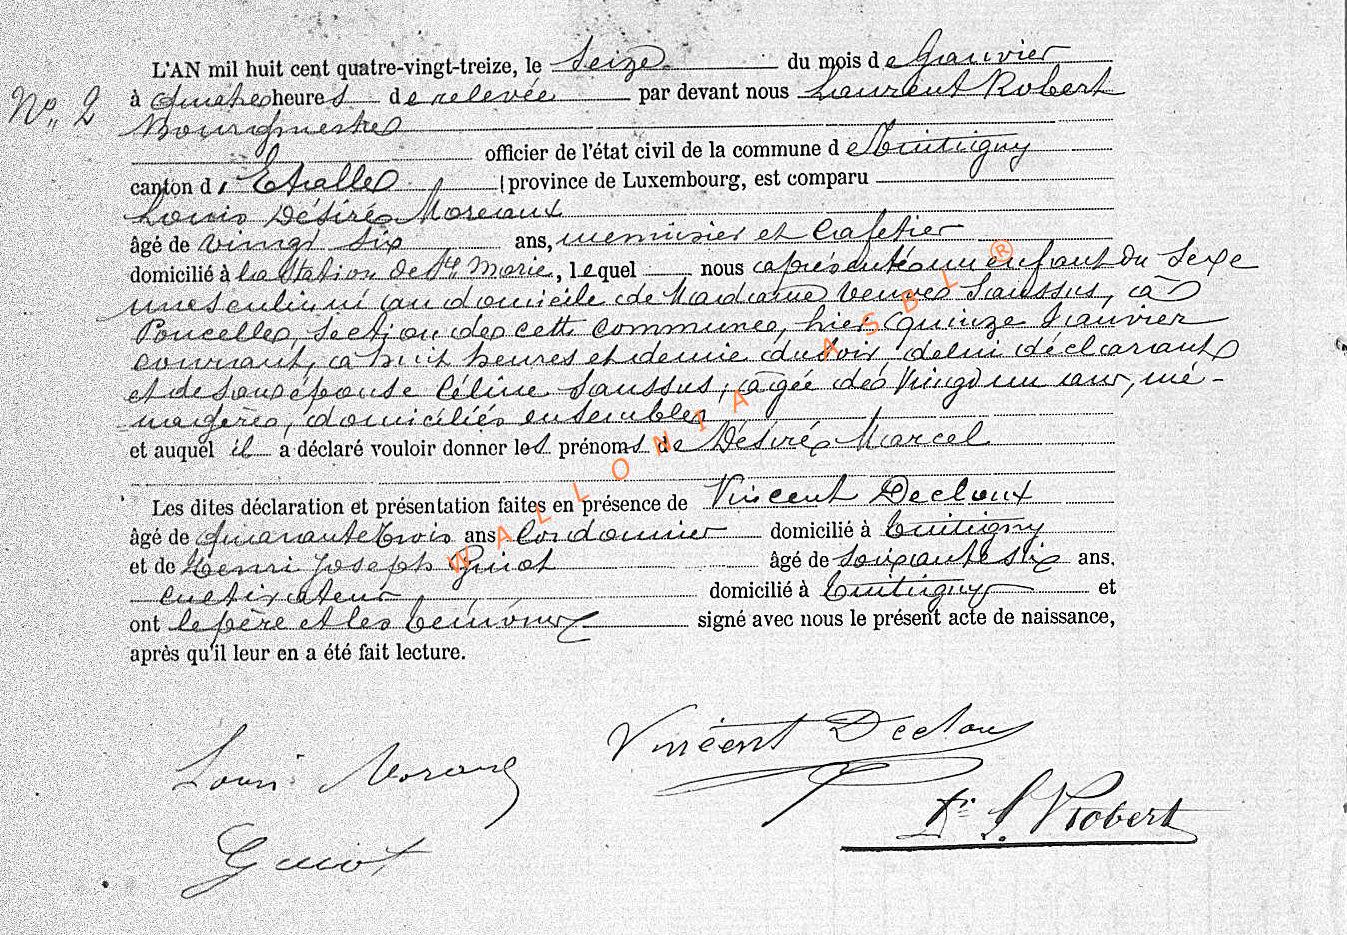 L'AN mil huit cent quatre-vingt-treize, le Seize du mois de Janvier
No. 2
à quatre heures de relevée par devant nous Laurent Robert
Bourgmestre
officier de l'état civil de la commune de Tintigny
canton d'Etalle province de Luxembourg, est comparu
Louis Désiré Moreaux
âgé de vingt six ans, menuisier et Cafetier
domicilié à la Station de Ste Marie, lequel nous a présenté un enfant du Sexe
masculin né au domicile de Madame veuve Saussus, à
Poncelle, section de cette commune, hier quinze Janvier
courant, à huit heures et demie du soir de lui déclarant
et de son épouse Céline Saussus, âgée de vingt un ans, mé-
nagère, domiciliés ensemble
et auquel il a déclaré vouloir donner les prénoms de Désiré Marcel
Les dites déclaration et présentation faites en présence de Vincent Decloux
âgé de quarante trois ans Cordonnier domicilié à Tintigny
et de Henri Joseph Guiot âgé de soixante six ans.
cultivateur domicilié à Tintigny et
ont le père et les témoins signé avec nous le présent acte de naissance,
après qu'il leur en a été fait lecture.
WALLONIA ASBL ®
Louis Moreaux
Vincent Decloux
L. Robert
Guiot